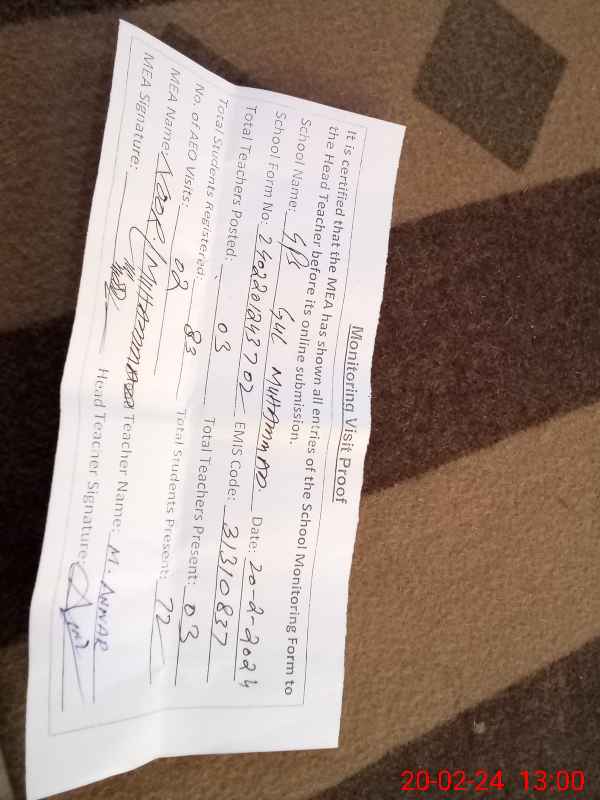 Monitoring Visit Proof
It is certified that the MEA has shown all entries of the School Monitoring Form to
the Head Teacher before its online submission.
School Name: GPS GUL MUHAMMAD. Date: 20-2-2024
School Form No: EMIS Code: 31310837
Total Teachers Posted: 03 Total Teachers Present: 03
Total Students Registered: 83 Total Students Present: 72
No. of AEO Visits: 02
MEA Name: Noor Muhammad Teacher Name: M. ANWAR
MEA Signature: Head Teacher Signature:
20-02-24 13:00